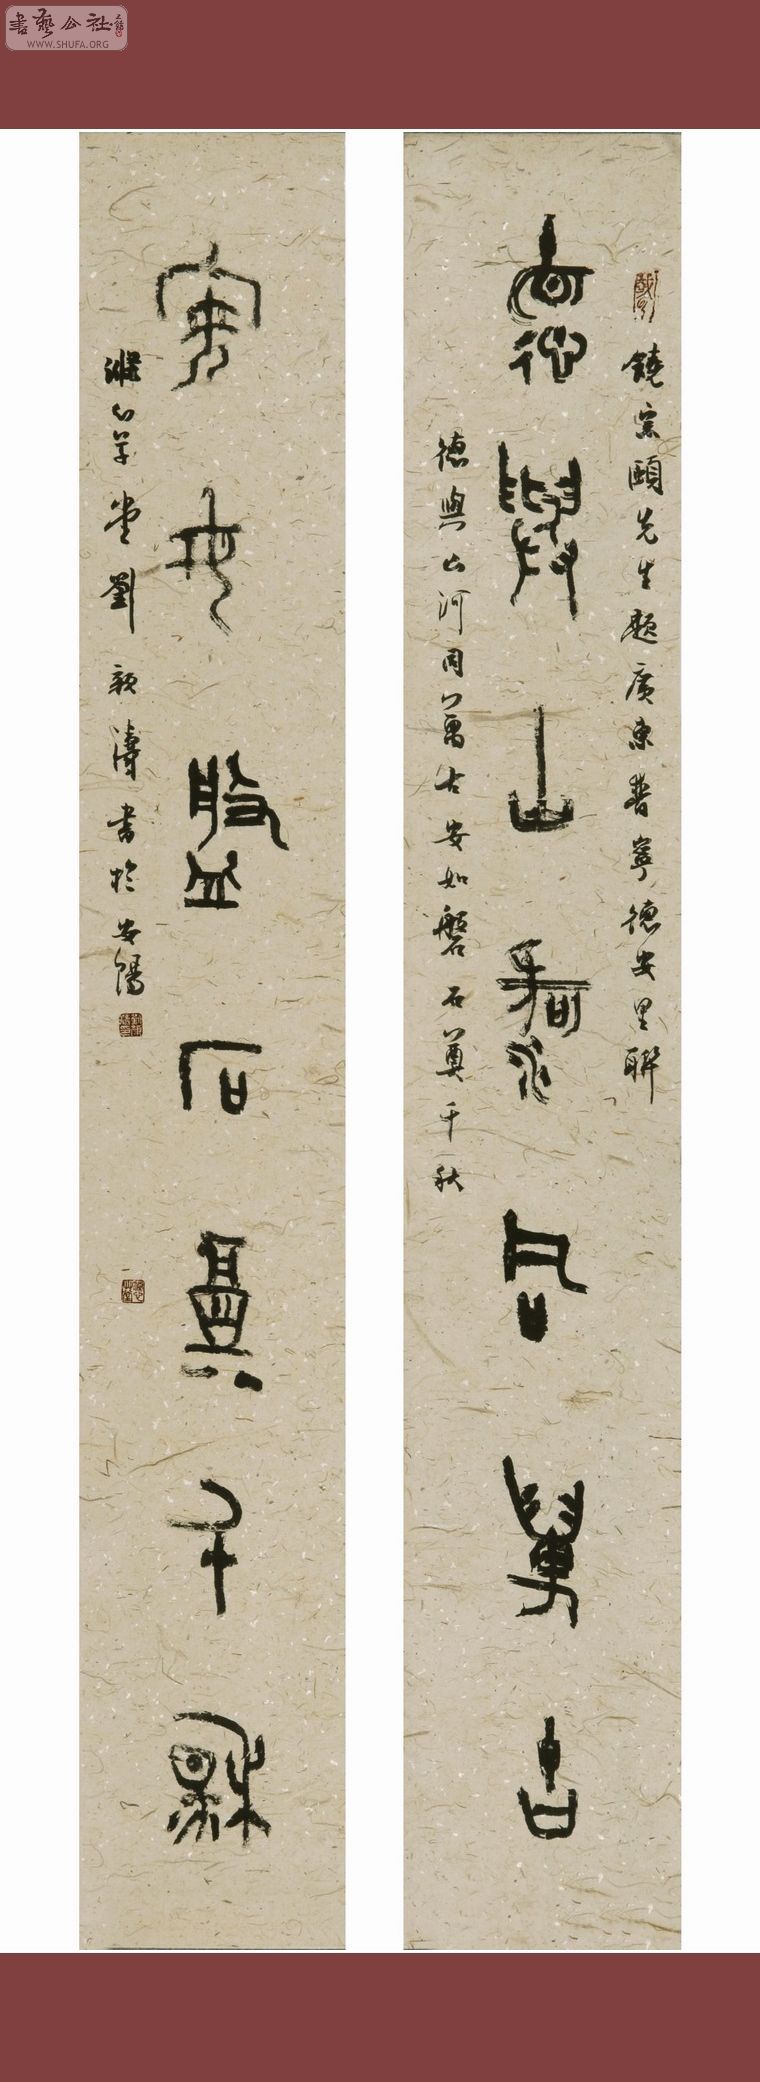 書藝公社
WWW.SHUFA.ORG
饒宗頤先生題廣東普寧德安里聯
德與山河同萬古
德與山河同萬古安如磐石奠千秋
安如磐石奠千秋
草堂劉颖濤書於安陽